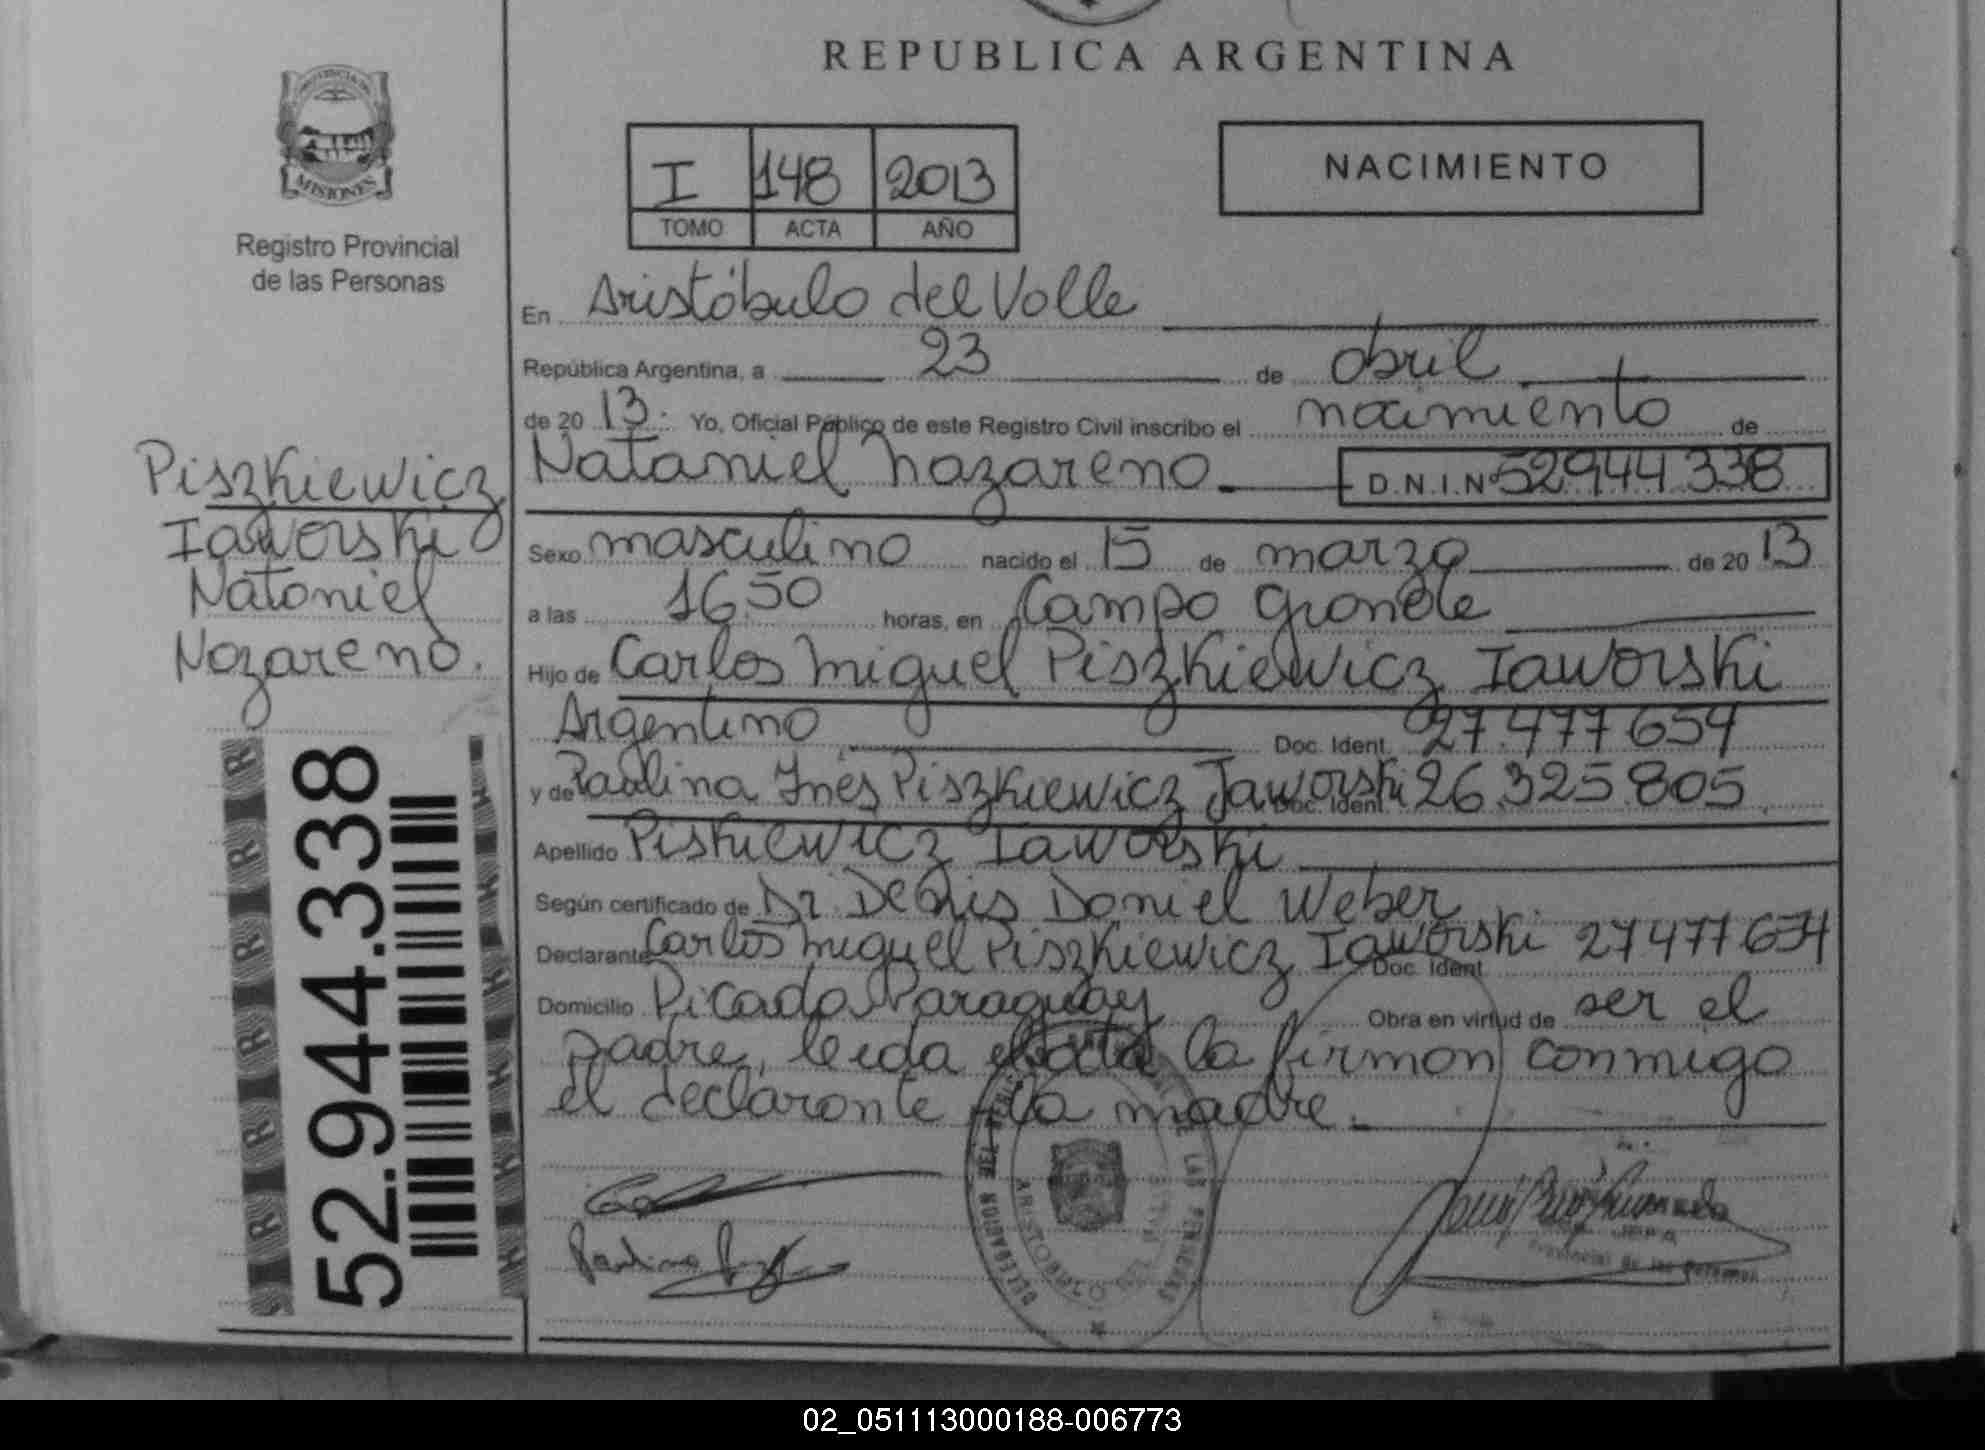 REPUBLICA ARGENTINA
PROVINCIA DE
MISIONES
Registro Provincial
de las Personas
I 148 2013
TOMO ACTA AÑO
NACIMIENTO
En Aristóbulo del Valle
República Argentina, a 23 de abril
de 20 13. Yo, Oficial Público de este Registro Civil inscribo el nacimiento de
Nataniel Nazareno. D.N.I.Nº 52944.338
Piszkiewicz
Iaworski
Nataniel
Nazareno.
Sexo masculino nacido el 15 de marzo de 20 13
a las 16 50 horas, en Campo Grande
Hijo de Carlos Miguel Piszkiewicz Iaworski
Argentino Doc. Ident. 27.477 654
y de Paulina Inés Piszkiewicz Jaworski Doc. Ident. 26.325.805
Apellido Piskiewicz Iaworski
Según certificado de Dr. Denis Daniel Weber
Declarante Carlos Miguel Piszkiewicz Iaworski Doc. Ident. 27477654
Domicilio Picada Paraguay Obra en virtud de ser el
padre, leida el acta la firman conmigo
el declarante y la madre.
52.944.338
R R R R R R
DELEGACION DEL REG. LAS PERSONAS
ARISTOBULO DEL VALLE
Provincial de las Personas
02_051113000188-006773